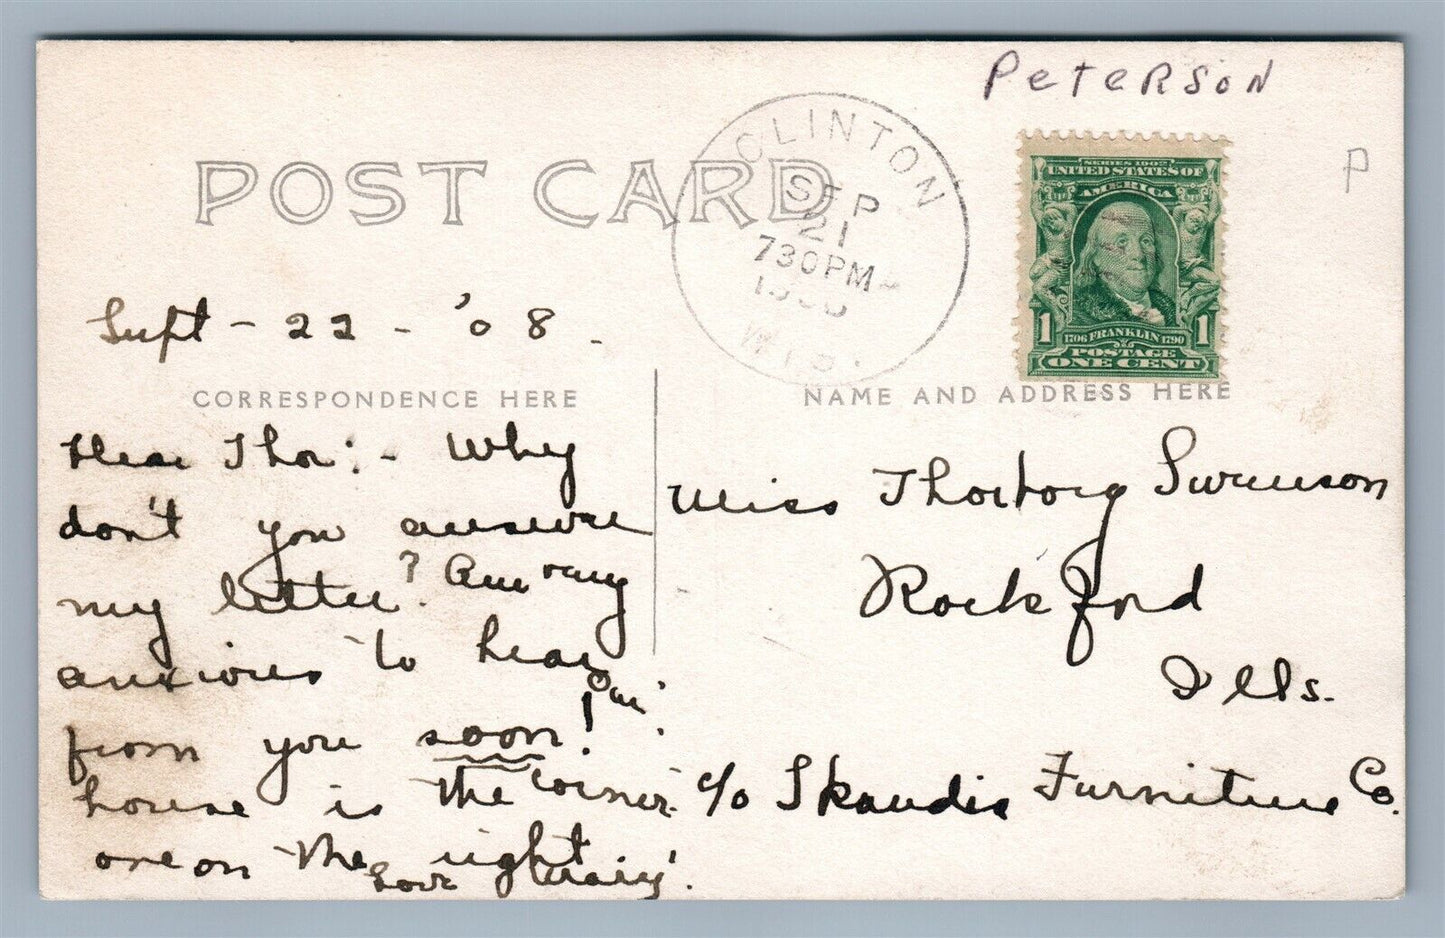 Peterson
P
POST CARD
CLINTON
SEP
21
730PM
WIS.
SERIES 1902
UNITED STATES OF
AMERICA
1 1
1706 FRANKLIN 1790
POSTAGE
ONE CENT
Sept - 22 - '08.
CORRESPONDENCE HERE
NAME AND ADDRESS HERE
Dear Thor: - Why
don't you answer
my letter? Am very
anxious to hear
from you soon! Our
house is the corner
one on the right
Love
Miss Thorborg Swanson
Rockford
Ills.
c/o Skandia Furniture Co.